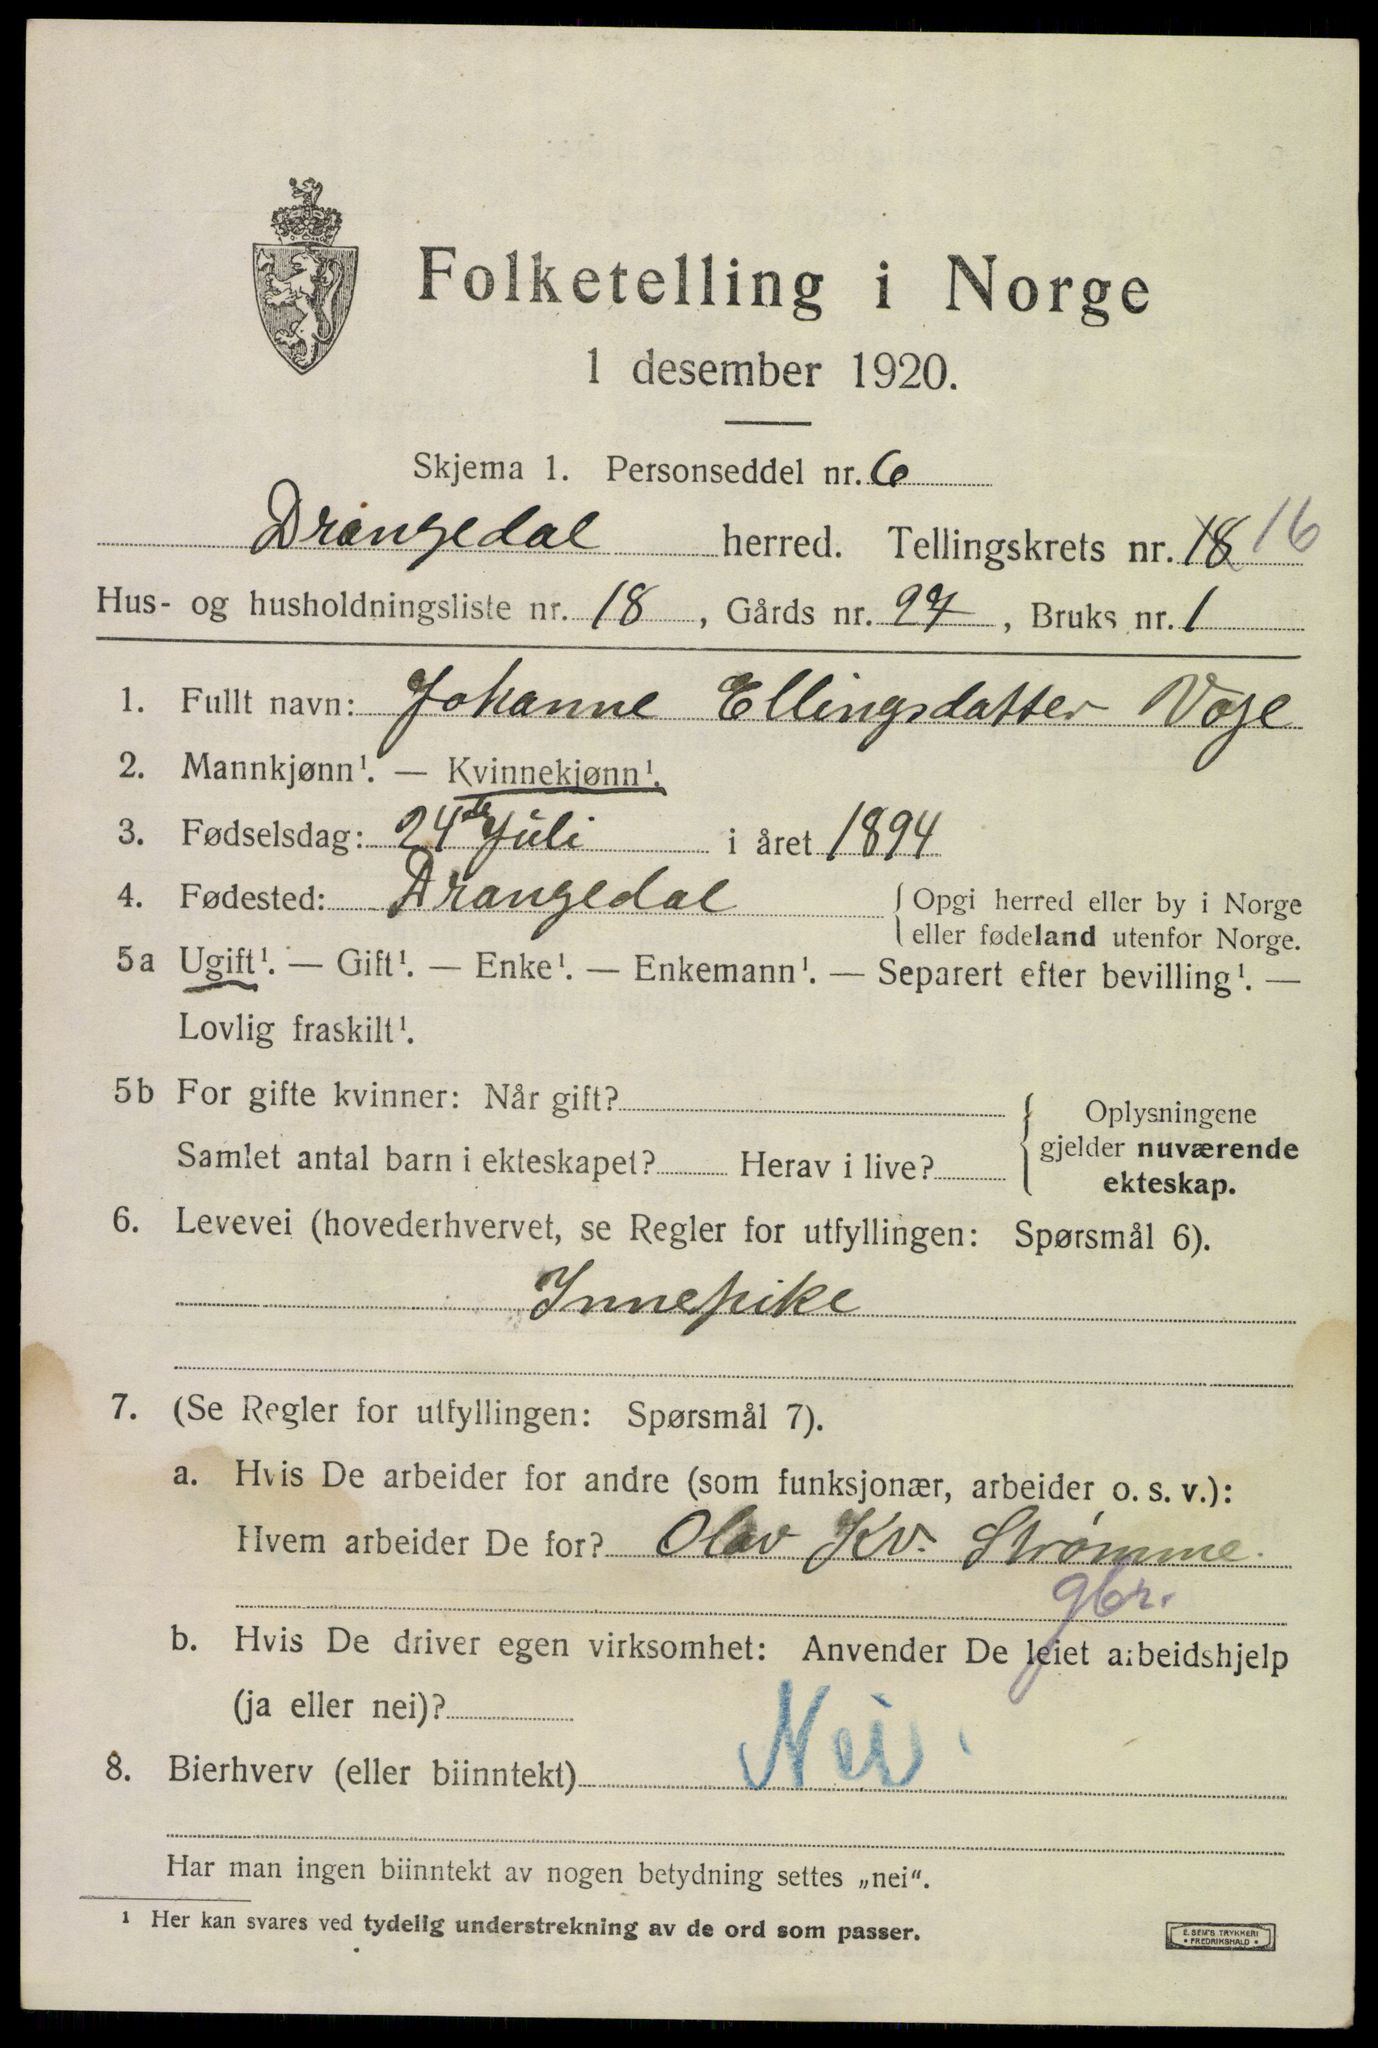 Folketelling i Norge
1 desember 1920.
Skjema 1. Personseddel nr. 6
Drangedal herred. Tellingskrets nr. 18 16
Hus- og husholdningsliste nr. 18, Gårds nr. 27, Bruks nr. 1
1. Fullt navn: Johanne Ellingsdatter Voje
2. Mannkjønn¹. — Kvinnekjønn¹.
3. Fødselsdag: 24de Juli i året 1894
4. Fødested: Drangedal { Opgi herred eller by i Norge
eller fødeland utenfor Norge.
5a Ugift¹. — Gift¹. — Enke¹. — Enkemann¹. — Separert efter bevilling¹. —
Lovlig fraskilt¹.
5b For gifte kvinner: Når gift?
Samlet antal barn i ekteskapet? Herav i live?
Oplysningene
gjelder nuværende
ekteskap.
6. Levevei (hovederhvervet, se Regler for utfyllingen: Spørsmål 6).
Innepike
7. (Se Regler for utfyllingen: Spørsmål 7).
a. Hvis De arbeider for andre (som funksjonær, arbeider o. s. v.):
Hvem arbeider De for? Olav Kv. Strømme.
gbr.
b. Hvis De driver egen virksomhet: Anvender De leiet arbeidshjelp
(ja eller nei)?
8. Bierhverv (eller biinntekt) Nei.
Har man ingen biinntekt av nogen betydning settes „nei“.
¹ Her kan svares ved tydelig understrekning av de ord som passer.
E. SEM'S TRYKKERI
• FREDRIKSHALD •